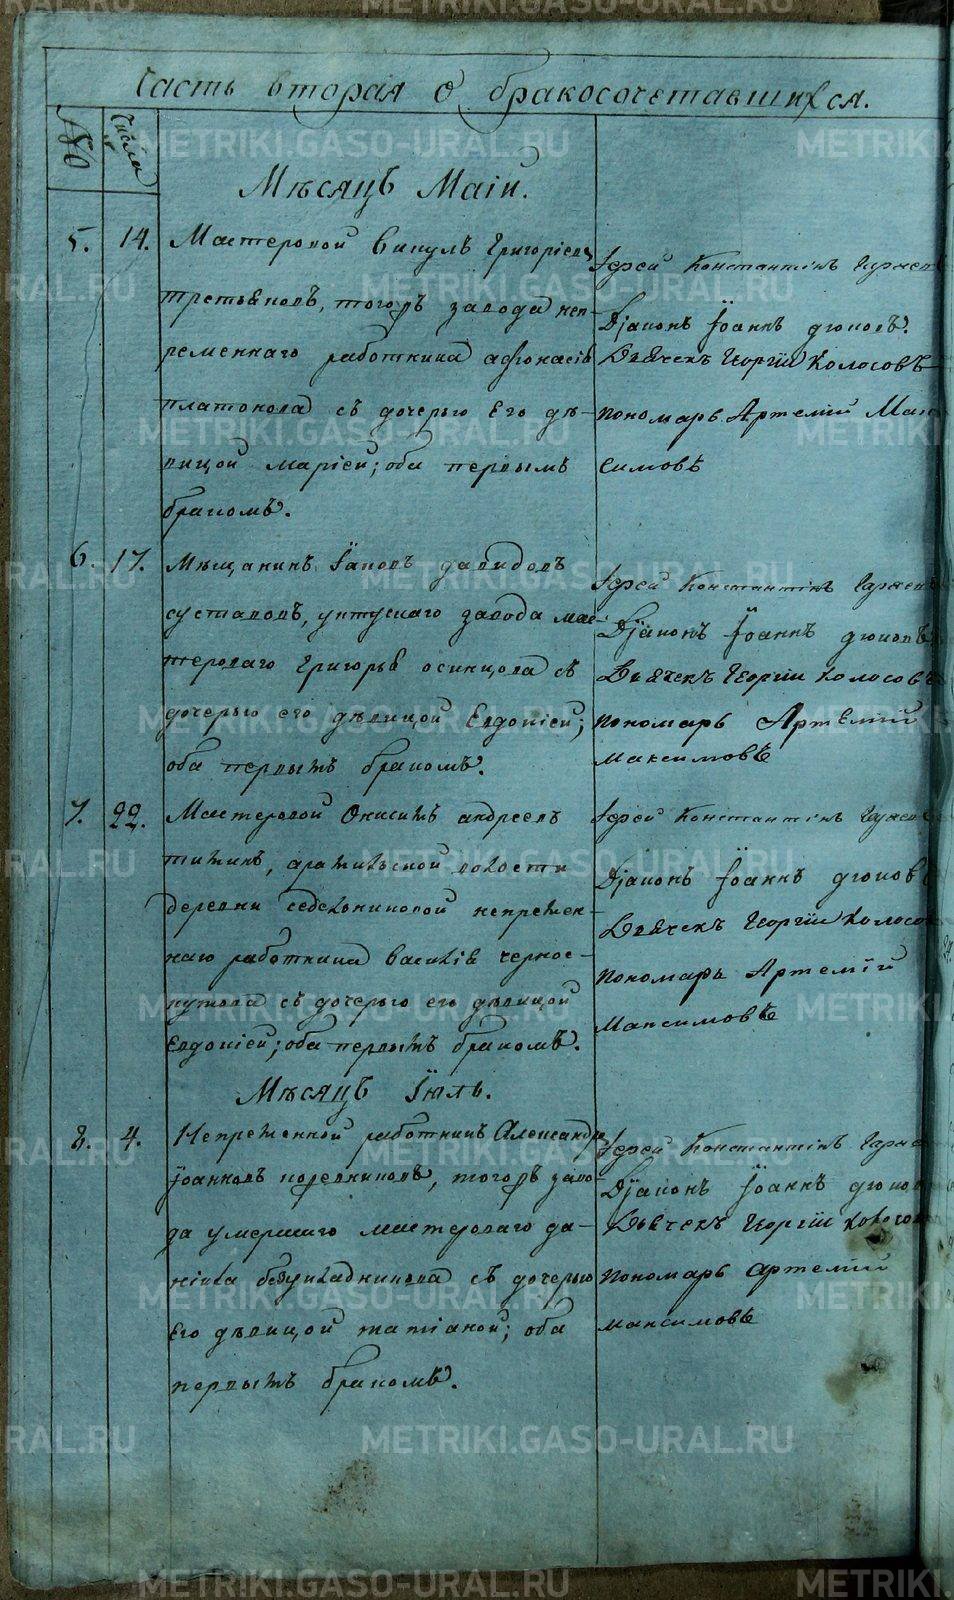 Часть вторая о бракосочетавшихся.
Числа
Мѣсяцъ Маій.
5. 14. Мастеровой Викулъ Григоріевъ
третьяковъ, тогожъ завода неп-
ременнаго работника афонасія
платонова съ дочерью Его дѣ-
вицой маріей; оба первымъ
бракомъ.
Іерей Константинъ
Діаконъ Іоаннъ дюковъ.
Дьячекъ Георгій Колосовъ
пономарь Артемій Мак
симовъ
6. 17. Мѣщанинъ Іаковъ давидовъ
суставовъ, уктускаго завода мас-
тероваго григорья осинцова съ
дочерью его дѣвицой Евдокіей;
оба первымъ бракомъ.
Іерей Константинъ
Діаконъ Іоаннъ дюковъ
Дьячекъ Георгій колосовъ
пономарь Артемій
максимовъ
7. 22. Мастеровой Онисимъ андреевъ
арамильской волости
деревни седельниковой непремен-
наго работника василія черно-
съ дочерью его дѣвицой
Евдокіей; оба первымъ бракомъ.
Іерей Константинъ
Діаконъ Іоаннъ дюковъ
Дьячекъ Георгій колосов
пономарь Артемій
Максимовъ
Мѣсяцъ Іюль.
8. 4. Непременной работникъ Александръ
Іоанновъ коревниковъ, тогожъ заво-
да умершаго мастероваго да-
ніила безукладникова съ дочерью
Его дѣвицой татіаной; оба
первымъ бракомъ.
Іерей Константинъ
Діаконъ Іоаннъ дюковъ
Дьячекъ Георгій колосов
пономарь артемій
максимовъ
METRIKI.GASO-URAL.RU